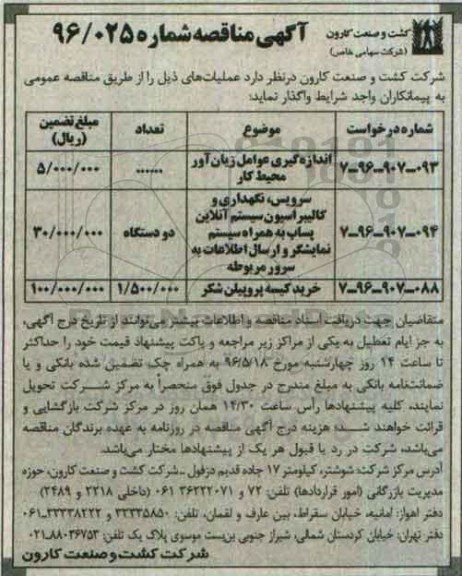 کشت و صنعت کارون
(شرکت سهامی خاص)
آگهی مناقصه شماره ۹۶/۰۲۵
شرکت کشت و صنعت کارون درنظر دارد عملیات‌های ذیل را از طریق مناقصه عمومی
به پیمانکاران واجد شرایط واگذار نماید:
شماره درخواست موضوع تعداد مبلغ تضمین (ریال)
۷-۹۶-۹۰۷-۰۹۳ اندازه‌گیری عوامل زیان‌آور محیط کار ...... ۵/۰۰۰/۰۰۰
۷-۹۶-۹۰۷-۰۹۴ سرویس، نگهداری و کالیبراسیون سیستم آنلاین پساب به همراه سیستم نمایشگر و ارسال اطلاعات به سرور مربوطه دو دستگاه ۳۰/۰۰۰/۰۰۰
۷-۹۶-۹۰۷-۰۸۸ خرید کیسه پروپیلن شکر ۱/۵۰۰/۰۰۰ ۱۰۰/۰۰۰/۰۰۰
متقاضیان جهت دریافت اسناد مناقصه و اطلاعات بیشتر می‌توانند از تاریخ درج آگهی،
به جز ایام تعطیل به یکی از مراکز زیر مراجعه و پاکت پیشنهاد قیمت خود را حداکثر
تا ساعت ۱۴ روز چهارشنبه مورخ ۹۶/۵/۱۸ به همراه چک تضمین شده بانکی و یا
ضمانتنامه بانکی به مبلغ مندرج در جدول فوق منحصراً به مرکز شرکت تحویل
نمایند، کلیه پیشنهادها رأس ساعت ۱۴/۳۰ همان روز در مرکز شرکت بازگشایی و
قرائت خواهند شد؛ هزینه درج آگهی مناقصه در روزنامه به عهده برندگان مناقصه
می‌باشد، شرکت در رد یا قبول هر یک از پیشنهادها مختار می‌باشد.
آدرس مرکز شرکت: شوشتر، کیلومتر ۱۷ جاده قدیم دزفول - شرکت کشت و صنعت کارون، حوزه
مدیریت بازرگانی (امور قراردادها) تلفن: ۷۲ و ۳۶۲۲۲۰۷۱ ۰۶۱ (داخلی ۲۲۱۸ و ۲۴۸۹)
دفتر اهواز: امانیه، خیابان سقراط، بین عارف و لقمان، تلفن: ۳۲۳۳۵۸۵۰ و ۳۳۳۳۸۲۲۲-۰۶۱
دفتر تهران: خیابان کردستان شمالی، شیراز جنوبی بن‌بست موسوی پلاک یک تلفن: ۸۸۰۳۶۷۵۳-۰۲۱
شرکت کشت و صنعت کارون